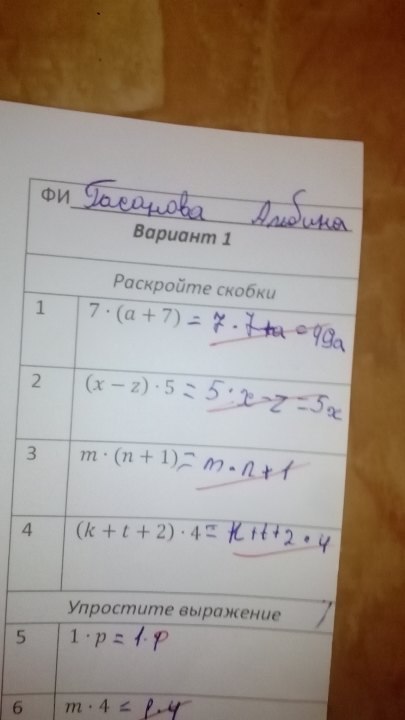 ФИ Гасанова Альбина
Вариант 1
Раскройте скобки
1 7 · (a + 7) = 7 · 7 + a = 49a
2 (x − z) · 5 = 5 · x − z = 5x
3 m · (n + 1) = m · n + 1
4 (k + t + 2) · 4 = k + t + 2 · 4
Упростите выражение
5 1 · p = 1 · p
6 m · 4 =